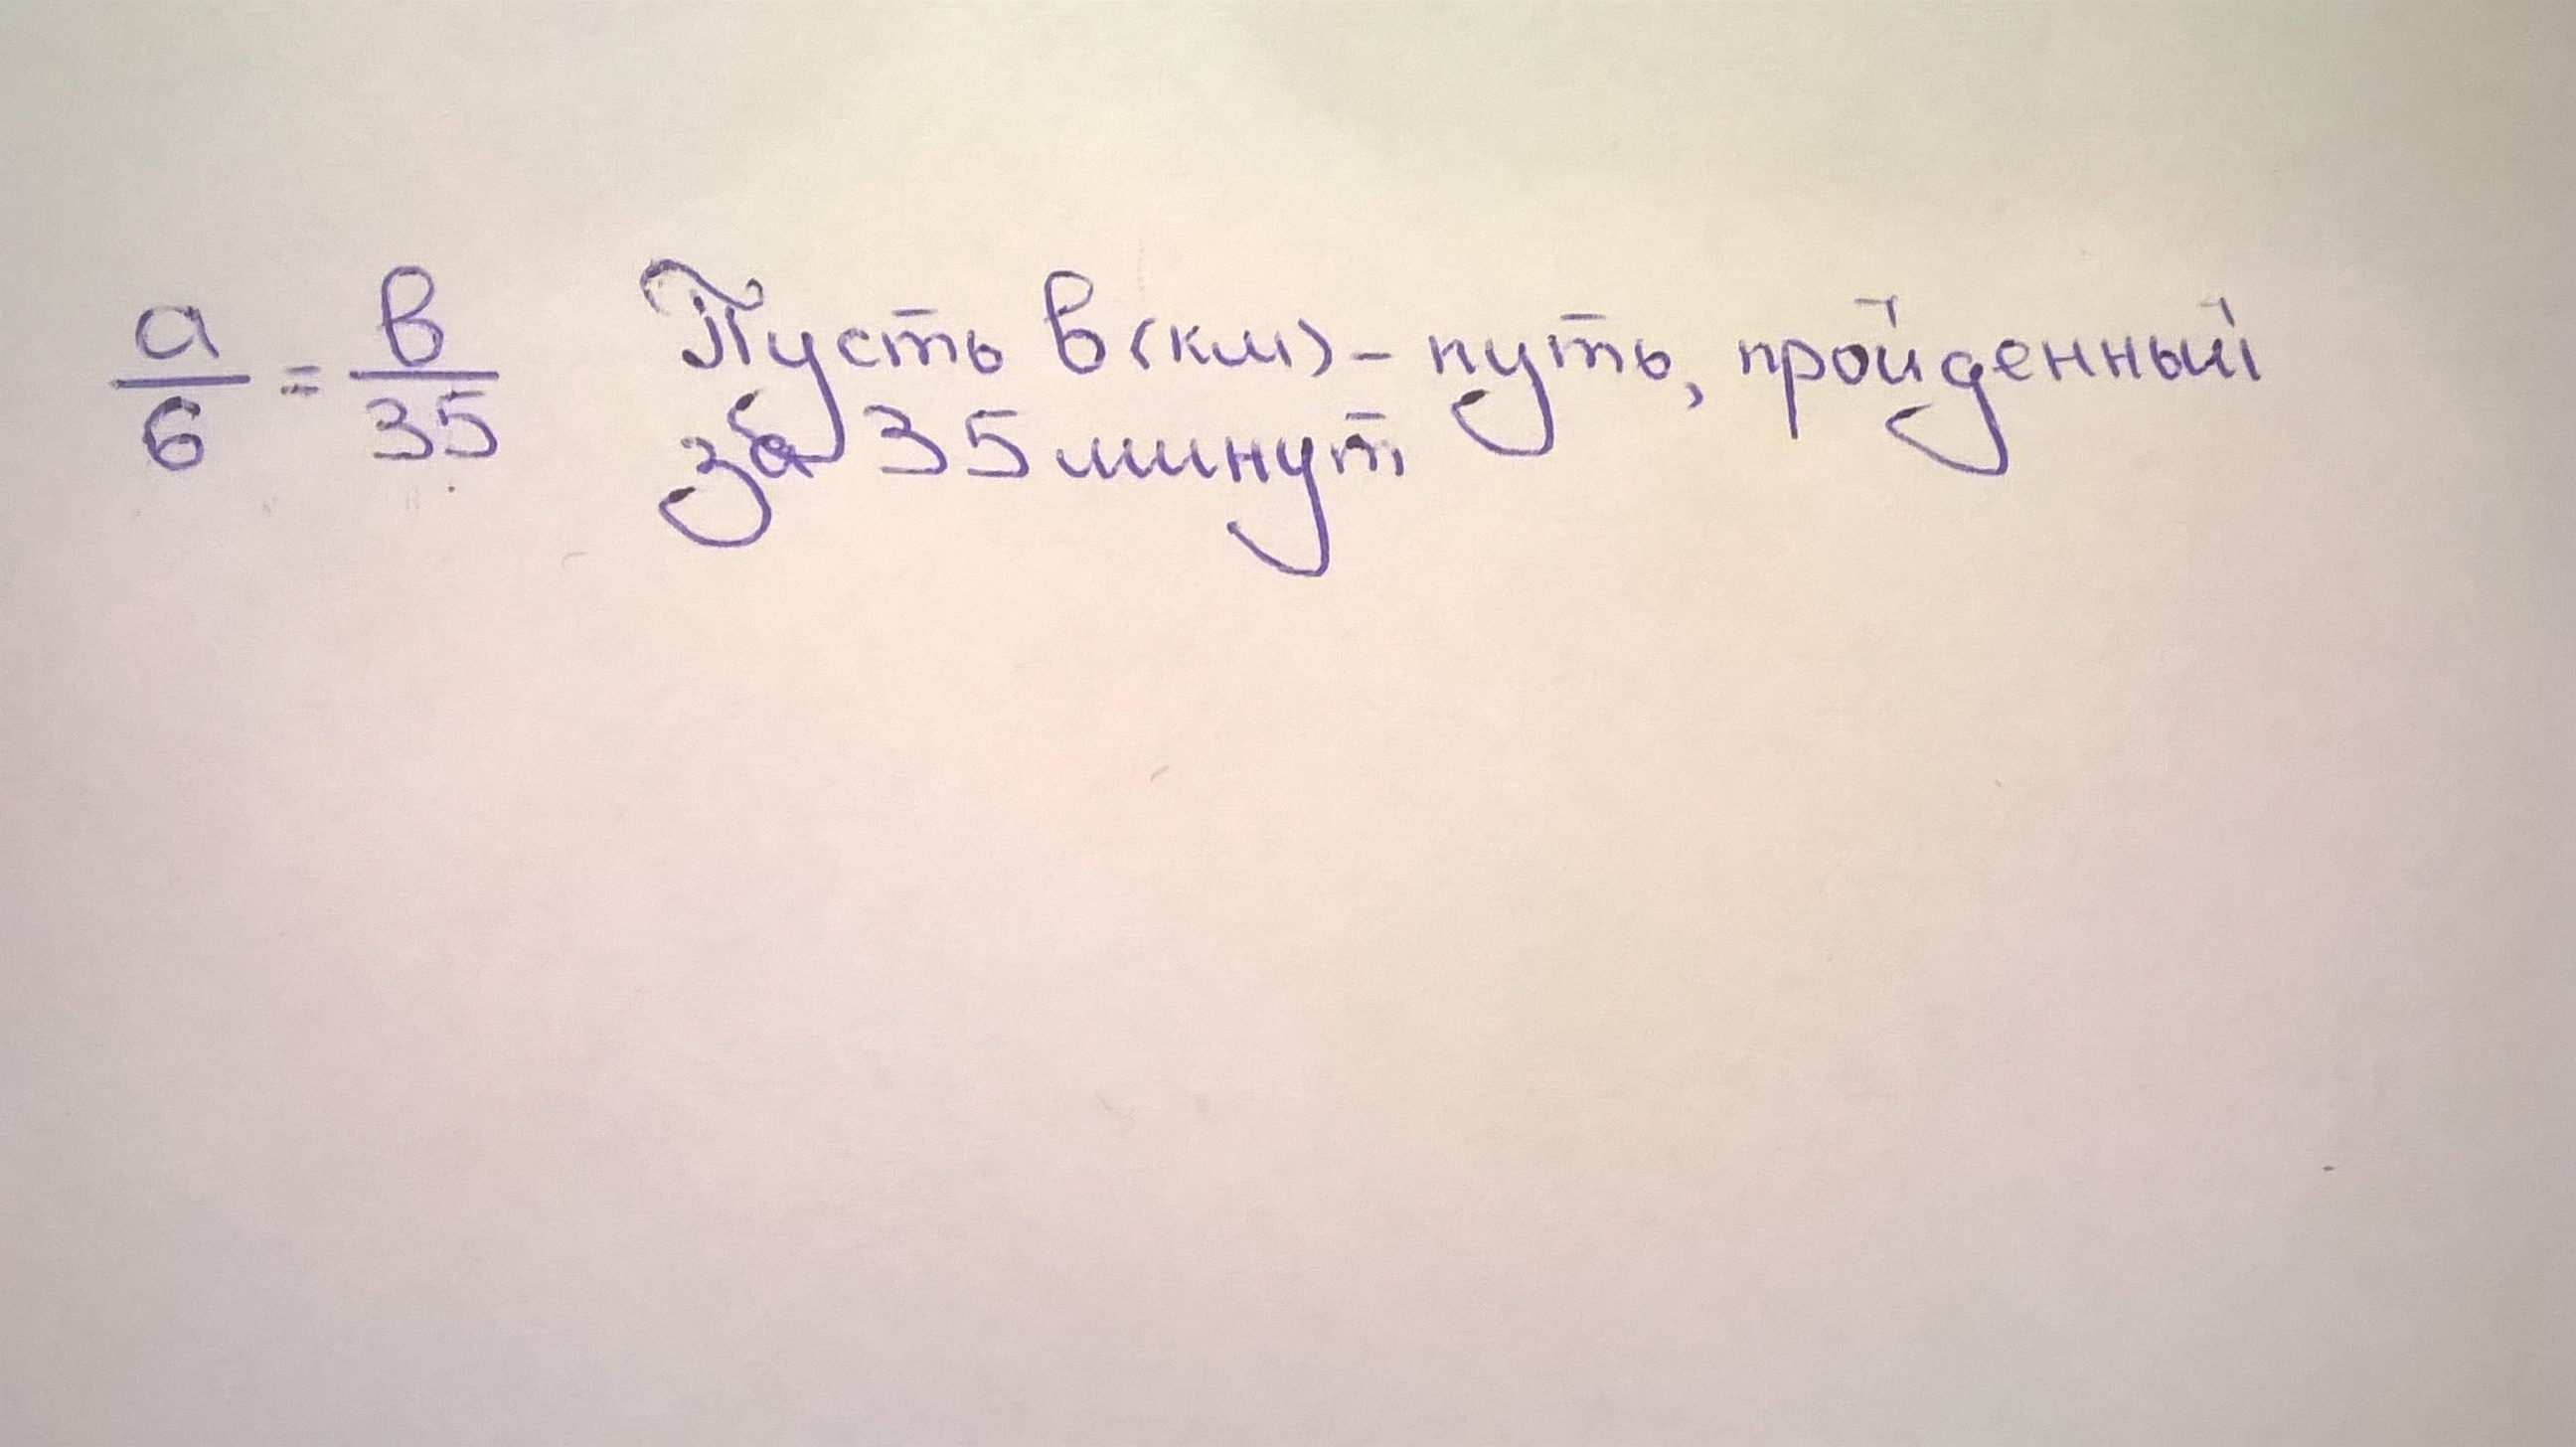 а/6 = в/35 Пусть в (км) - путь, пройденный
за 35 минут